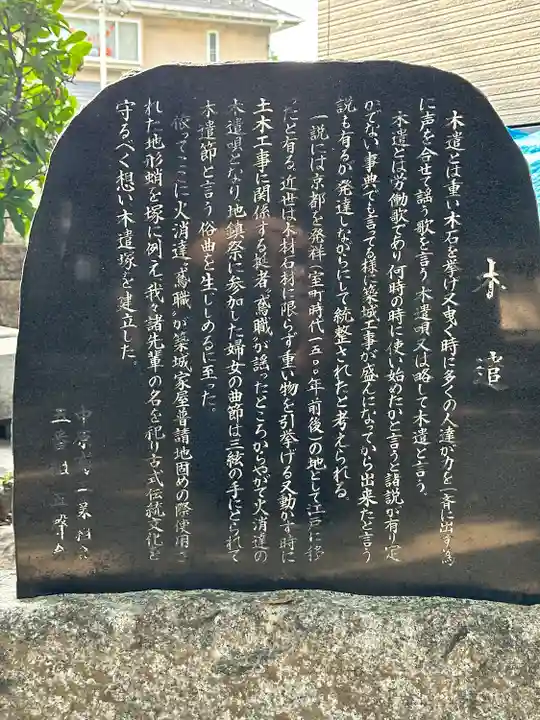 木遣
木遣とは重い木石を挙げ又曳く時に多くの人達が力を一斉に出す為
に声を合せて謡う歌を言う木遣唄又は略して木遣と言う。
木遣とは労働歌であり何時の時に使い始めたかと言うと諸説が有り定
かでない事典でも言ってる様に築城工事が盛んになってから出来たと言う
説も有るが発達しながらにして統整されたと考えられる。
一説には京都を発祥(室町時代一五〇〇年前後)の地として江戸に移
ったと有る。近世は木材石材に限らず重い物を引挙げる又動かす時に
土木工事に関係する延者〝鳶職〟が謡ったところからやがて火消達の
木遣唄となり地鎮祭に参加した婦女の曲節は三絃の手にとられて
木遣節と言う俗曲を生じしめるに至った。
依ってここに火消達〝鳶職〟が築城、家屋普請地固めの際使用さ
れた地形蛸を塚に例え我々諸先輩の名を祀り古式伝統文化を
守るべく想い木遣塚を建立した。
五番組